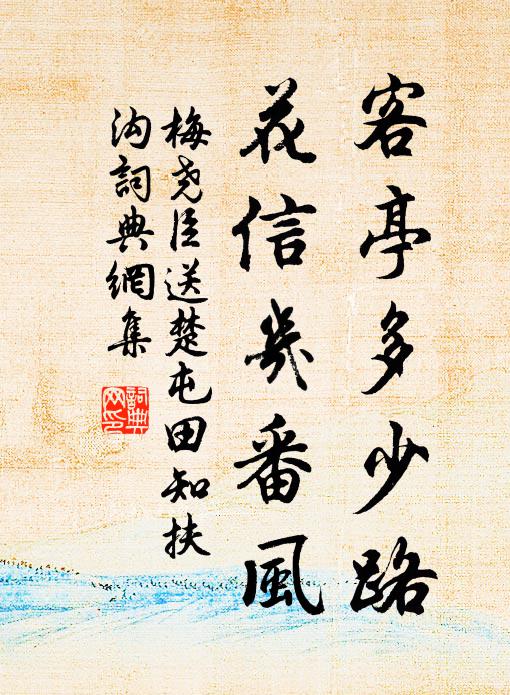 客亭多少路
花信幾番風
梅堯臣送楚屯田知扶
沟詞典網集
詞典
网印